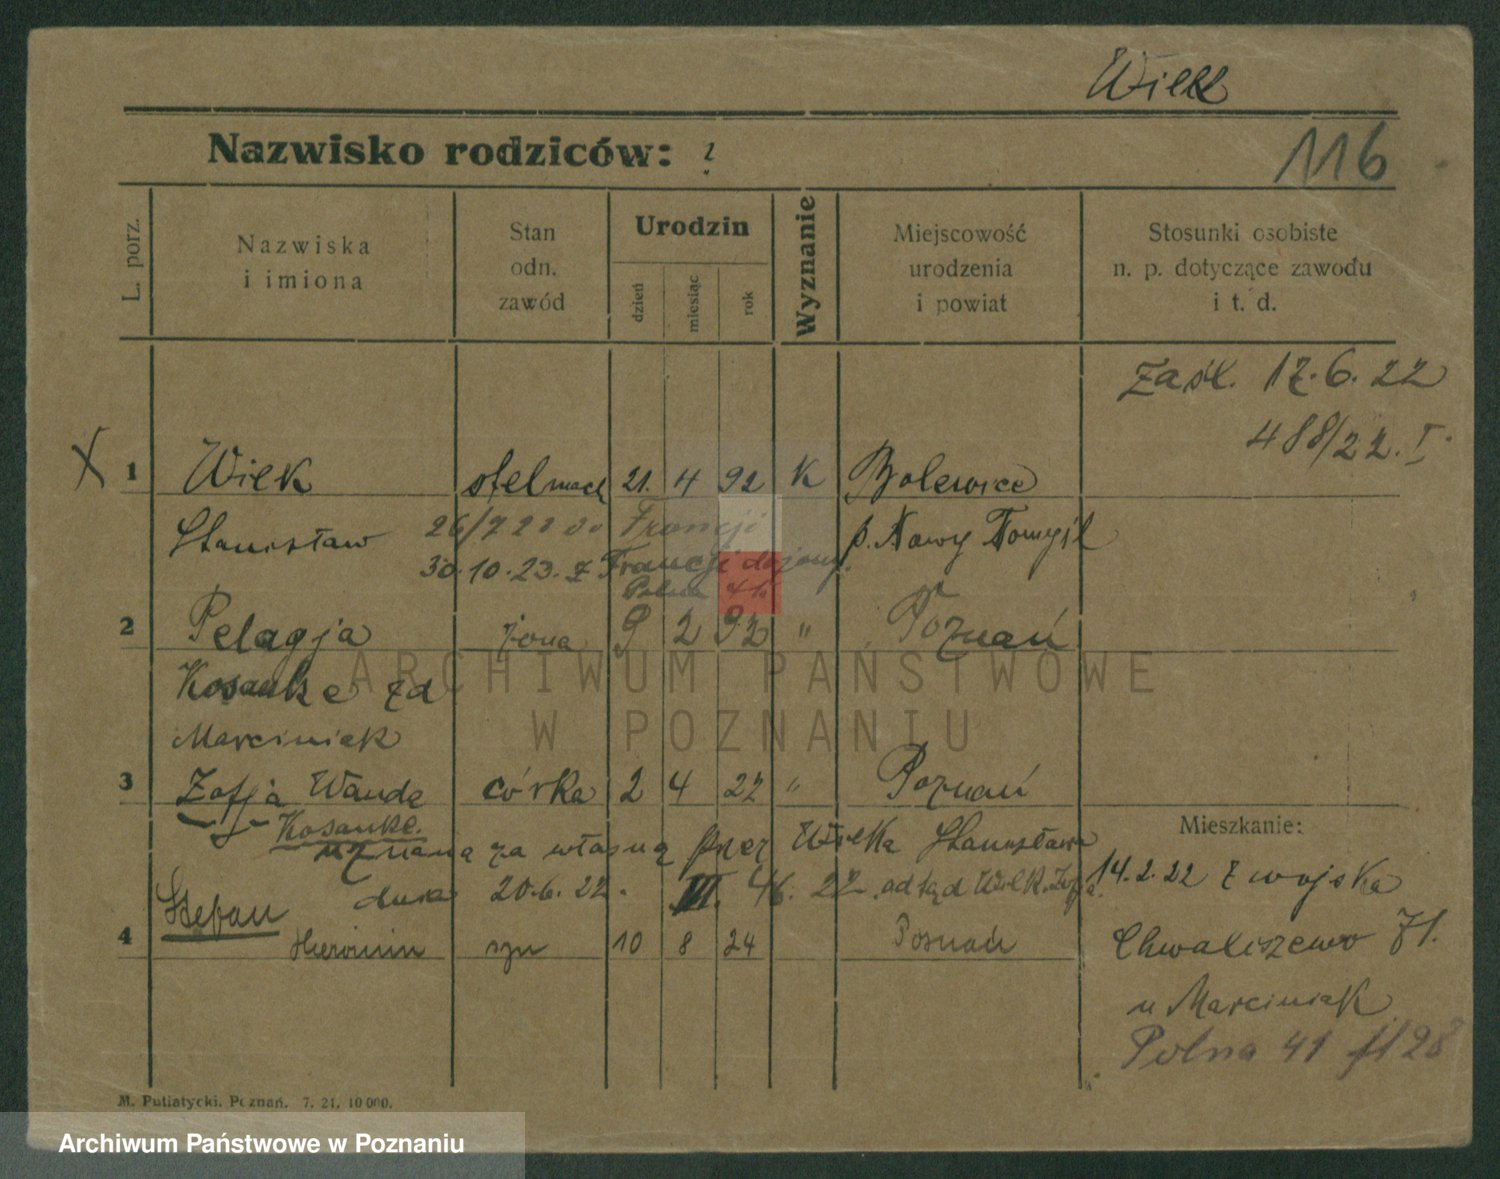 Wilk
Nazwisko rodziców: ?
116
L. porz.
Nazwiska
i imiona
Stan
odn.
zawód
Urodzin
dzień
miesiąc
rok
Wyznanie
Miejscowość
urodzenia
i powiat
Stosunki osobiste
n. p. dotyczące zawodu
i t. d.
Zaśl. 17.6.22
488/22. I
X 1 Wilk stelmach 21. 4 92 K Bolewice
Stanisław p. Nowy Tomyśl
26/7 Francji
30.10.23. z Francji
2 Pelagja żona 9 2 92 " Poznań
Kosanke zd
Marciniak
3 Zofja Wanda córka 2 4 22 " Poznań
Kosanke.
uznana za własną przez Wilka Stanisława
dnia 20.6.22. III. 22. odtąd Wilk Zofja.
Mieszkanie:
14.2.22 z wojska
4 Stefan
Hieronim syn 10 8 24 Poznań
Chwaliszewo 71.
u Marciniak
Polna 41
M. Putiatycki, Poznań. 7. 21. 10 000.
ARCHIWUM PAŃSTWOWE
W POZNANIU
Archiwum Państwowe w Poznaniu